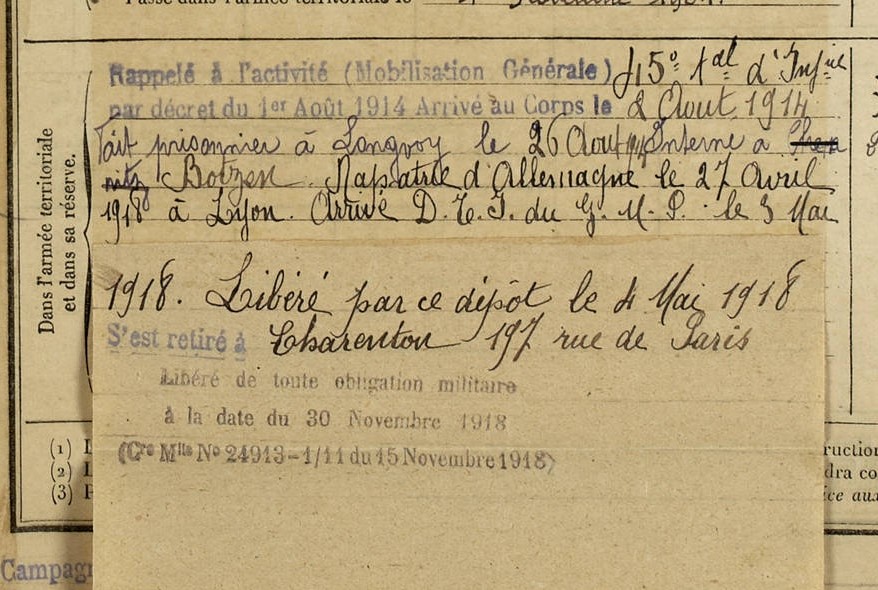 Passé dans l'armée territoriale le
Dans l'armée territoriale
et dans sa réserve.
Rappelé à l'activité (Mobilisation Générale) 45e tal d'Infie
par décret du 1er Août 1914 Arrivé au Corps le 2 Aout 1914
Fait prisonnier à Longwoy le 26 Aout 1914 Interné à
Botzen Rapatrié d'Allemagne le 27 Avril
1918 à Lyon. Arrivé D. T. I. du G. M. P. le 3 Mai
1918. Libéré par ce dépôt le 4 Mai 1918
S'est retiré à Charenton 197 rue de Paris
Libéré de toute obligation militaire
à la date du 30 Novembre 1918
(Cre Mlle No 24913-1/11 du 15 Novembre 1918)
(1) L
(2) L
(3) P
ruction
dra co
ice aux
Campagn